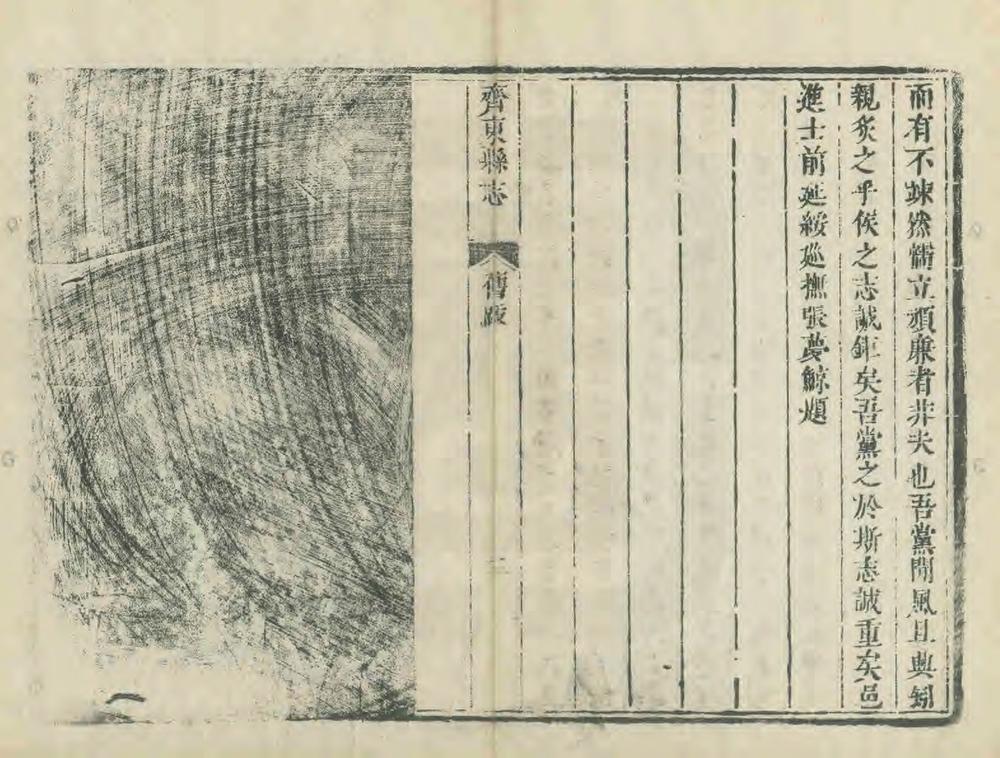 而有不竦然懦立頑廉者非夫也吾黨聞風且興矧
親炙之乎侯之志誠鉅矣吾黨之於斯志誠重矣邑
進士前延綏巡撫張夢鯨題
齊東縣志
舊跋
二